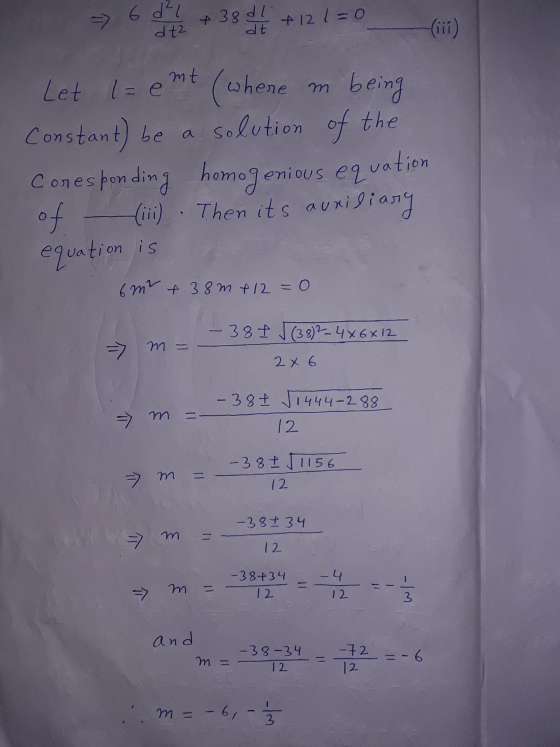 ⇒ 6 d²l/dt² + 38 dl/dt + 12 l = 0 ——(iii)
Let l = e^mt (where m being
Constant) be a solution of the
Coresponding homogenious equation
of ——(iii). Then its auxiliary
equation is
6m² + 38m + 12 = 0
⇒ m = (-38 ± √((38)² - 4×6×12))/(2×6)
⇒ m = (-38 ± √(1444-288))/12
⇒ m = (-38 ± √1156)/12
⇒ m = (-38 ± 34)/12
⇒ m = (-38+34)/12 = -4/12 = -1/3
and
m = (-38-34)/12 = -72/12 = -6
∴ m = -6, -1/3